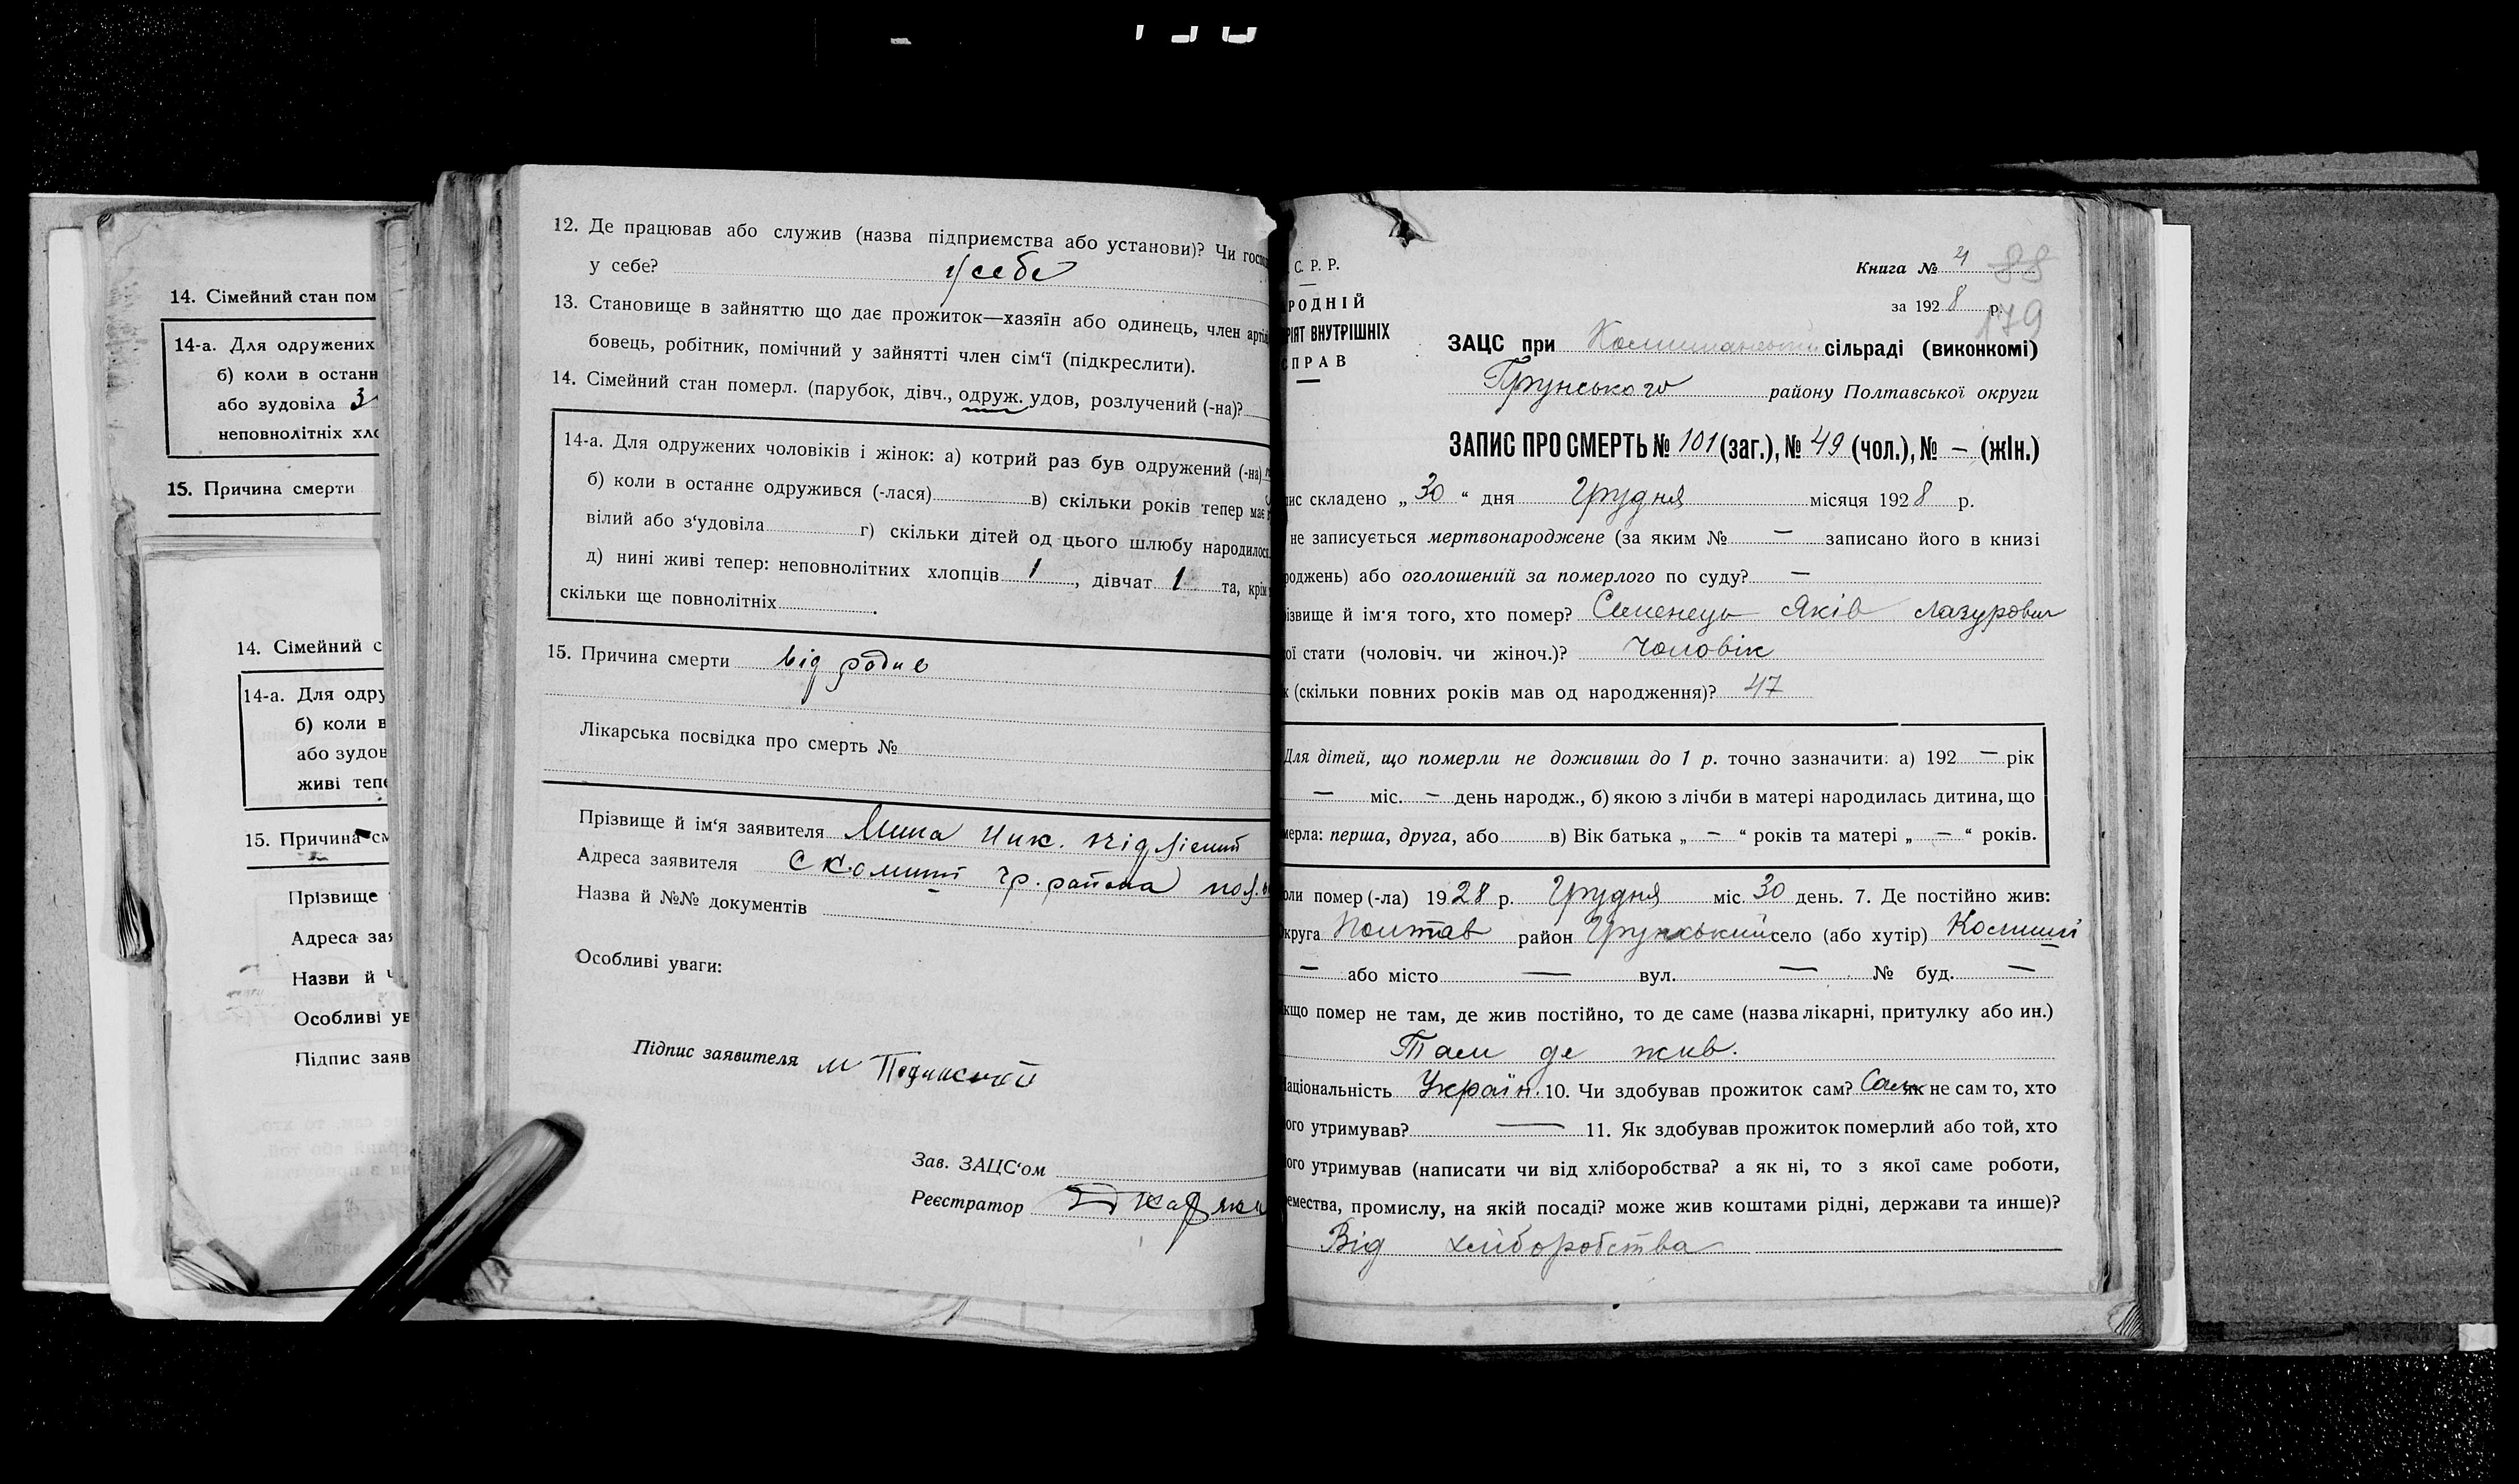 14. Сімейний стан пом
14-а. Для одружених
б) коли в останн
або зудовіла
неповнолітніх хло
15. Причина смерти
14. Сімейний с
14-а. Для одру
б) коли в
або зудов
живі тепе
15. Причина см
Прізвище
Адреса зая
Назви й
Особливі ув
Підпис заяв
12. Де працював або служив (назва підприємства або установи)? Чи госп
у себе? у себе
13. Становище в зайняттю що дає прожиток—хазяїн або одинець, член арті
бовець, робітник, помічний у зайнятті член сім'ї (підкреслити).
14. Сімейний стан померл. (парубок, дівч., одруж. удов, розлучений (-на)?
14-а. Для одружених чоловіків і жінок: а) котрий раз був одружений (-на)
б) коли в останнє одружився (-лася) в) скільки років тепер має
вілий або з'удовіла г) скільки дітей од цього шлюбу народилося
д) нині живі тепер: неповнолітних хлопців 1, дівчат 1 та, крім
скільки ще повнолітніх .
15. Причина смерти від родив
Лікарська посвідка про смерть №
Прізвище й ім'я заявителя Мина Ник.
Адреса заявителя с Комиші гр. района пол.
Назва й №№ документів
Особливі уваги:
Підпис заявителя м
Зав. ЗАЦС'ом
Реєстратор
С. Р. Р.
РОДНІЙ
РІЯТ ВНУТРІШНІХ
СПРАВ
Книга № 4 88
за 1928 р. 179
ЗАЦС при Комишанській сільраді (виконкомі)
Грунського району Полтавської округи
ЗАПИС ПРО СМЕРТЬ № 101 (заг.), № 49 (чол.), № – (жін.)
ис складено „30“ дня Грудня місяця 1928 р.
не записується мертвонароджене (за яким № — записано його в книзі
роджень) або оголошений за померлого по суду? —
ізвище й ім'я того, хто помер? Семенець Яків Лазурович
ої стати (чоловіч. чи жіноч.)? Чоловік
к (скільки повних років мав од народження)? 47
Для дітей, що померли не доживши до 1 р. точно зазначити: а) 192 — рік
— міс. – день народж., б) якою з лічби в матері народилась дитина, що
мерла: перша, друга, або в) Вік батька „ – “ років та матері „ – “ років.
оли помер (-ла) 1928 р. Грудня міс. 30 день. 7. Де постійно жив:
круга Полтав район Грунський село (або хутір) Комиші
— або місто — вул. — № буд. —
кщо помер не там, де жив постійно, то де саме (назва лікарні, притулку або ин.)
Там де жив.
аціональність Україн. 10. Чи здобував прожиток сам? Сам як не сам то, хто
ого утримував? — 11. Як здобував прожиток померлий або той, хто
ого утримував (написати чи від хліборобства? а як ні, то з якої саме роботи,
емества, промислу, на якій посаді? може жив коштами рідні, держави та инше)?
Від хліборобства